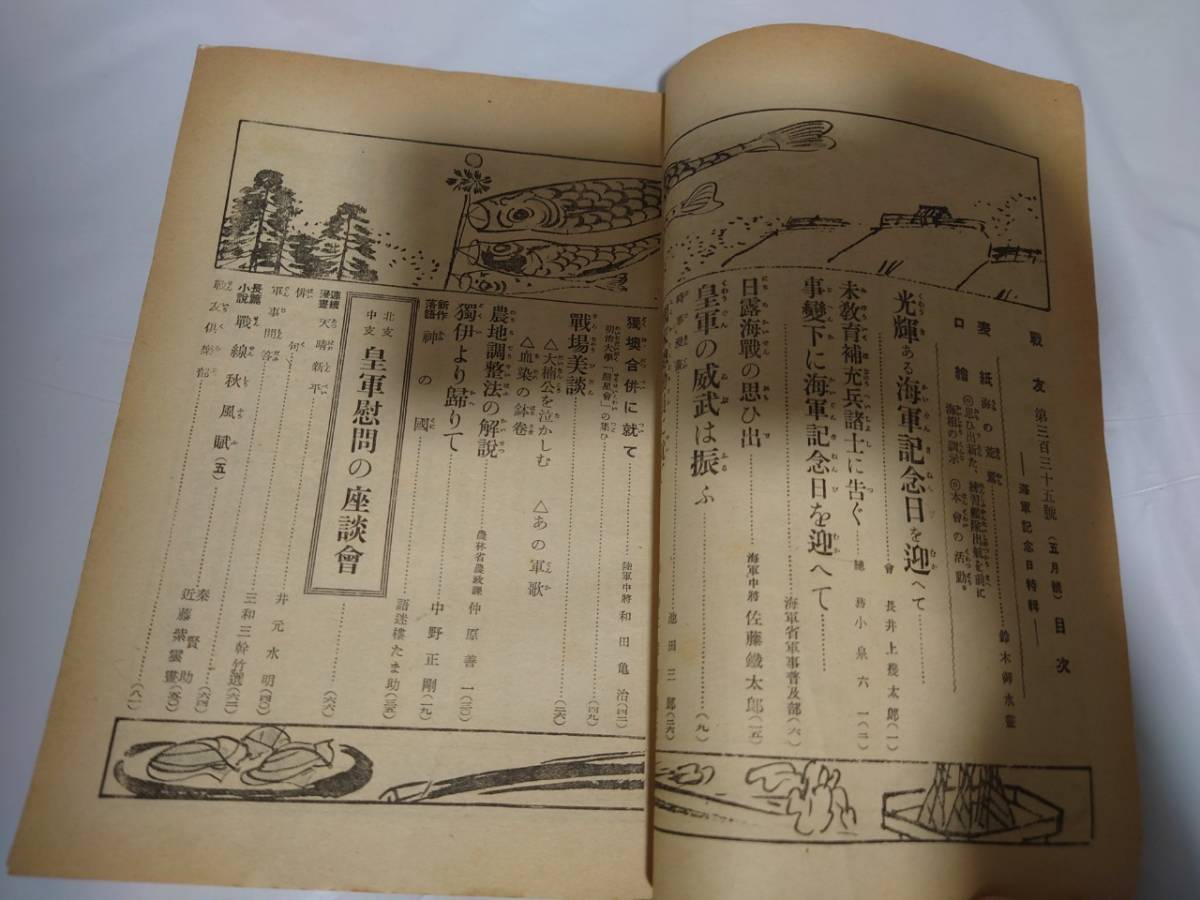 戰友 第三百三十五號(五月號)目次
―海軍記念日特輯―
表紙 海の荒鷲 鈴木御水畫
口繪 ◎思ひ出新た、練習艦隊出航を前に
海相の訓示 ◎本會の活動
光輝ある海軍記念日を迎へて 會長 井上幾太郎(一)
未教育補充兵諸士に告ぐ 小泉六一(二)
事變下に海軍記念日を迎へて 海軍省軍事普及部(六)
日露海戰の思ひ出 海軍中將 佐藤鐵太郎(一五)
皇軍の威武は振ふ (九)
池田三郎(二六)
獨墺合併に就て 陸軍中將 和田亀治(四二)
明治大學「照星會」の集ひ (四九)
戰場美談 (二六)
△大楠公を泣かしむ △あの軍歌
△血染の鉢卷
農地調整法の解說 農林省農政課 仲原善一(三一)
獨伊より歸りて 中野正剛(一九)
新作落語 神の國 語迷樓たま助(三五)
北支中支 皇軍慰問の座談會 (六六)
連續漫畫 天晴新平 井元水明(四〇)
俳句 三和三幹竹選(六二)
軍事問答 (六四)
長篇小說 戰線秋風賦(五) 秦賢助 近藤紫雲畫(五〇)
戰友俱樂部 (八一)